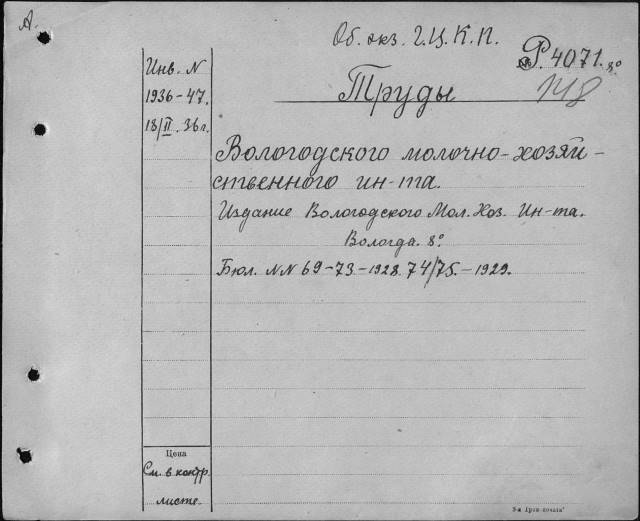 А.
Об. экз. Г.Ц.К.П.
№ Р. 4071. 8°
Труды
148
Инв. N
1936-47.
18/II. 36 г.
Вологодского молочно-хозяй-
ственного ин-та.
Издание Вологодского Мол. Хоз. Ин-та.
Вологда. 8°.
Бюл. NN 69-73-1928. 74/75.-1929.
Цена
См. в контр.
листе.